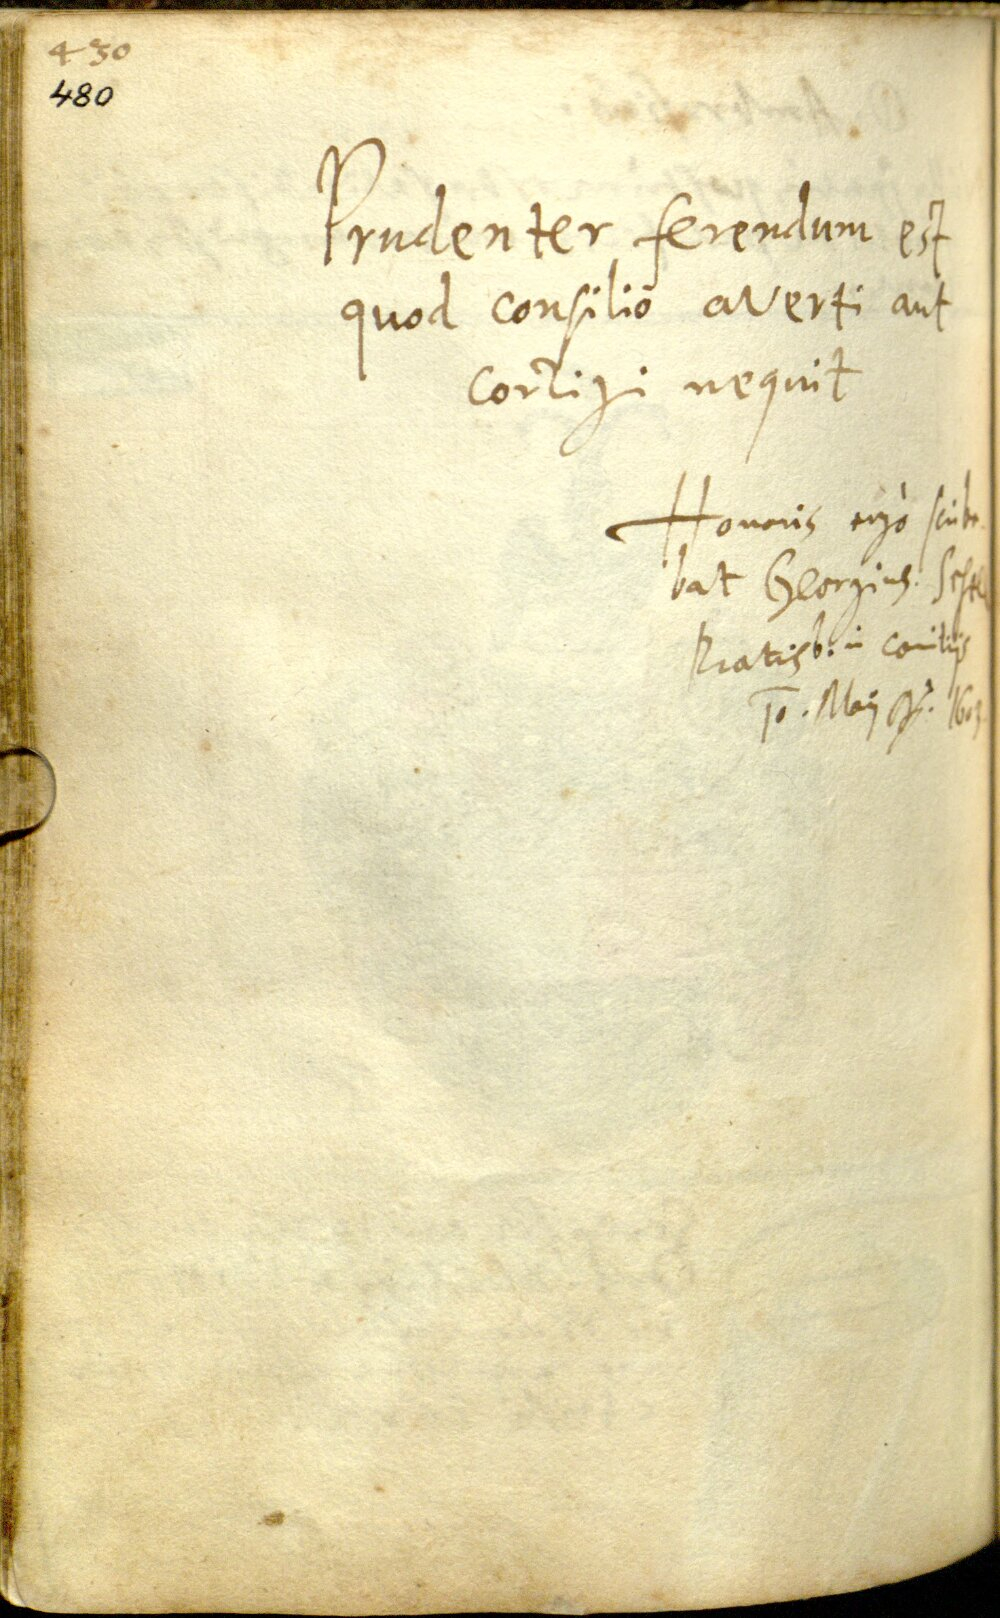 430
480
Prudenter ferendum est
quod consilio averti aut
corrigi nequit
Honoris ergò scribe-
bat Georgius
Ratisb: in comitijs
10. Maij A°. 1603